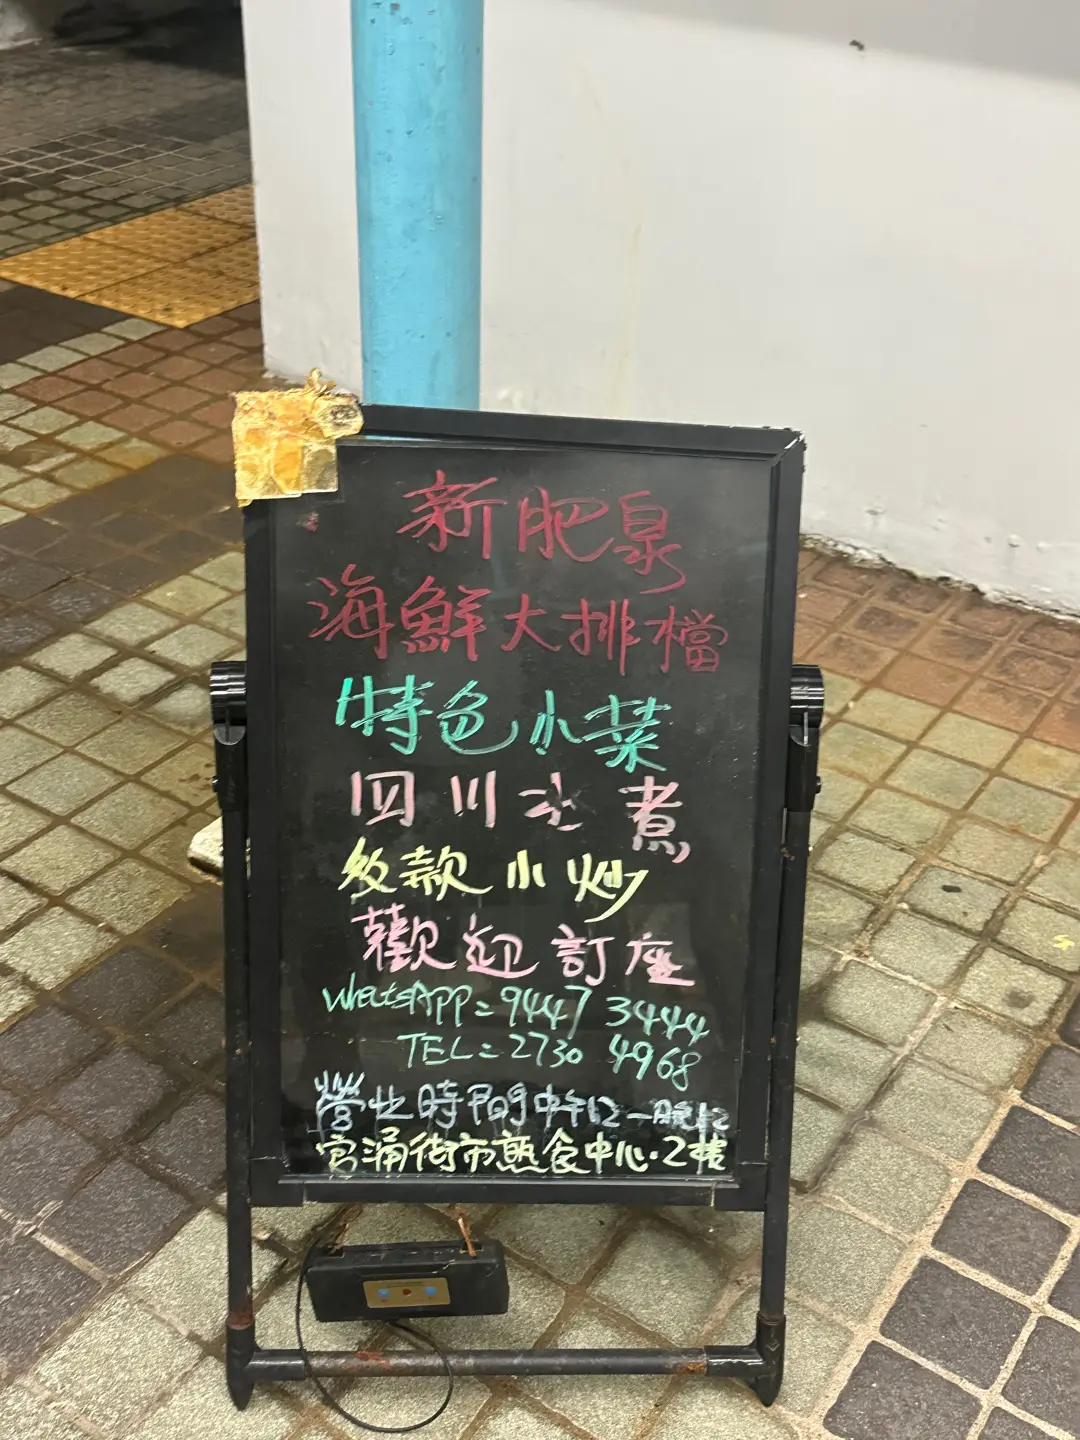 新肥泉
海鮮大排檔
特色小菜
四川水煮
多款小炒
歡迎訂座
WhatsAPP=9447 3444
TEL=2730 4968
營业時間中午12-晚12
官涌街市熟食中心·2樓